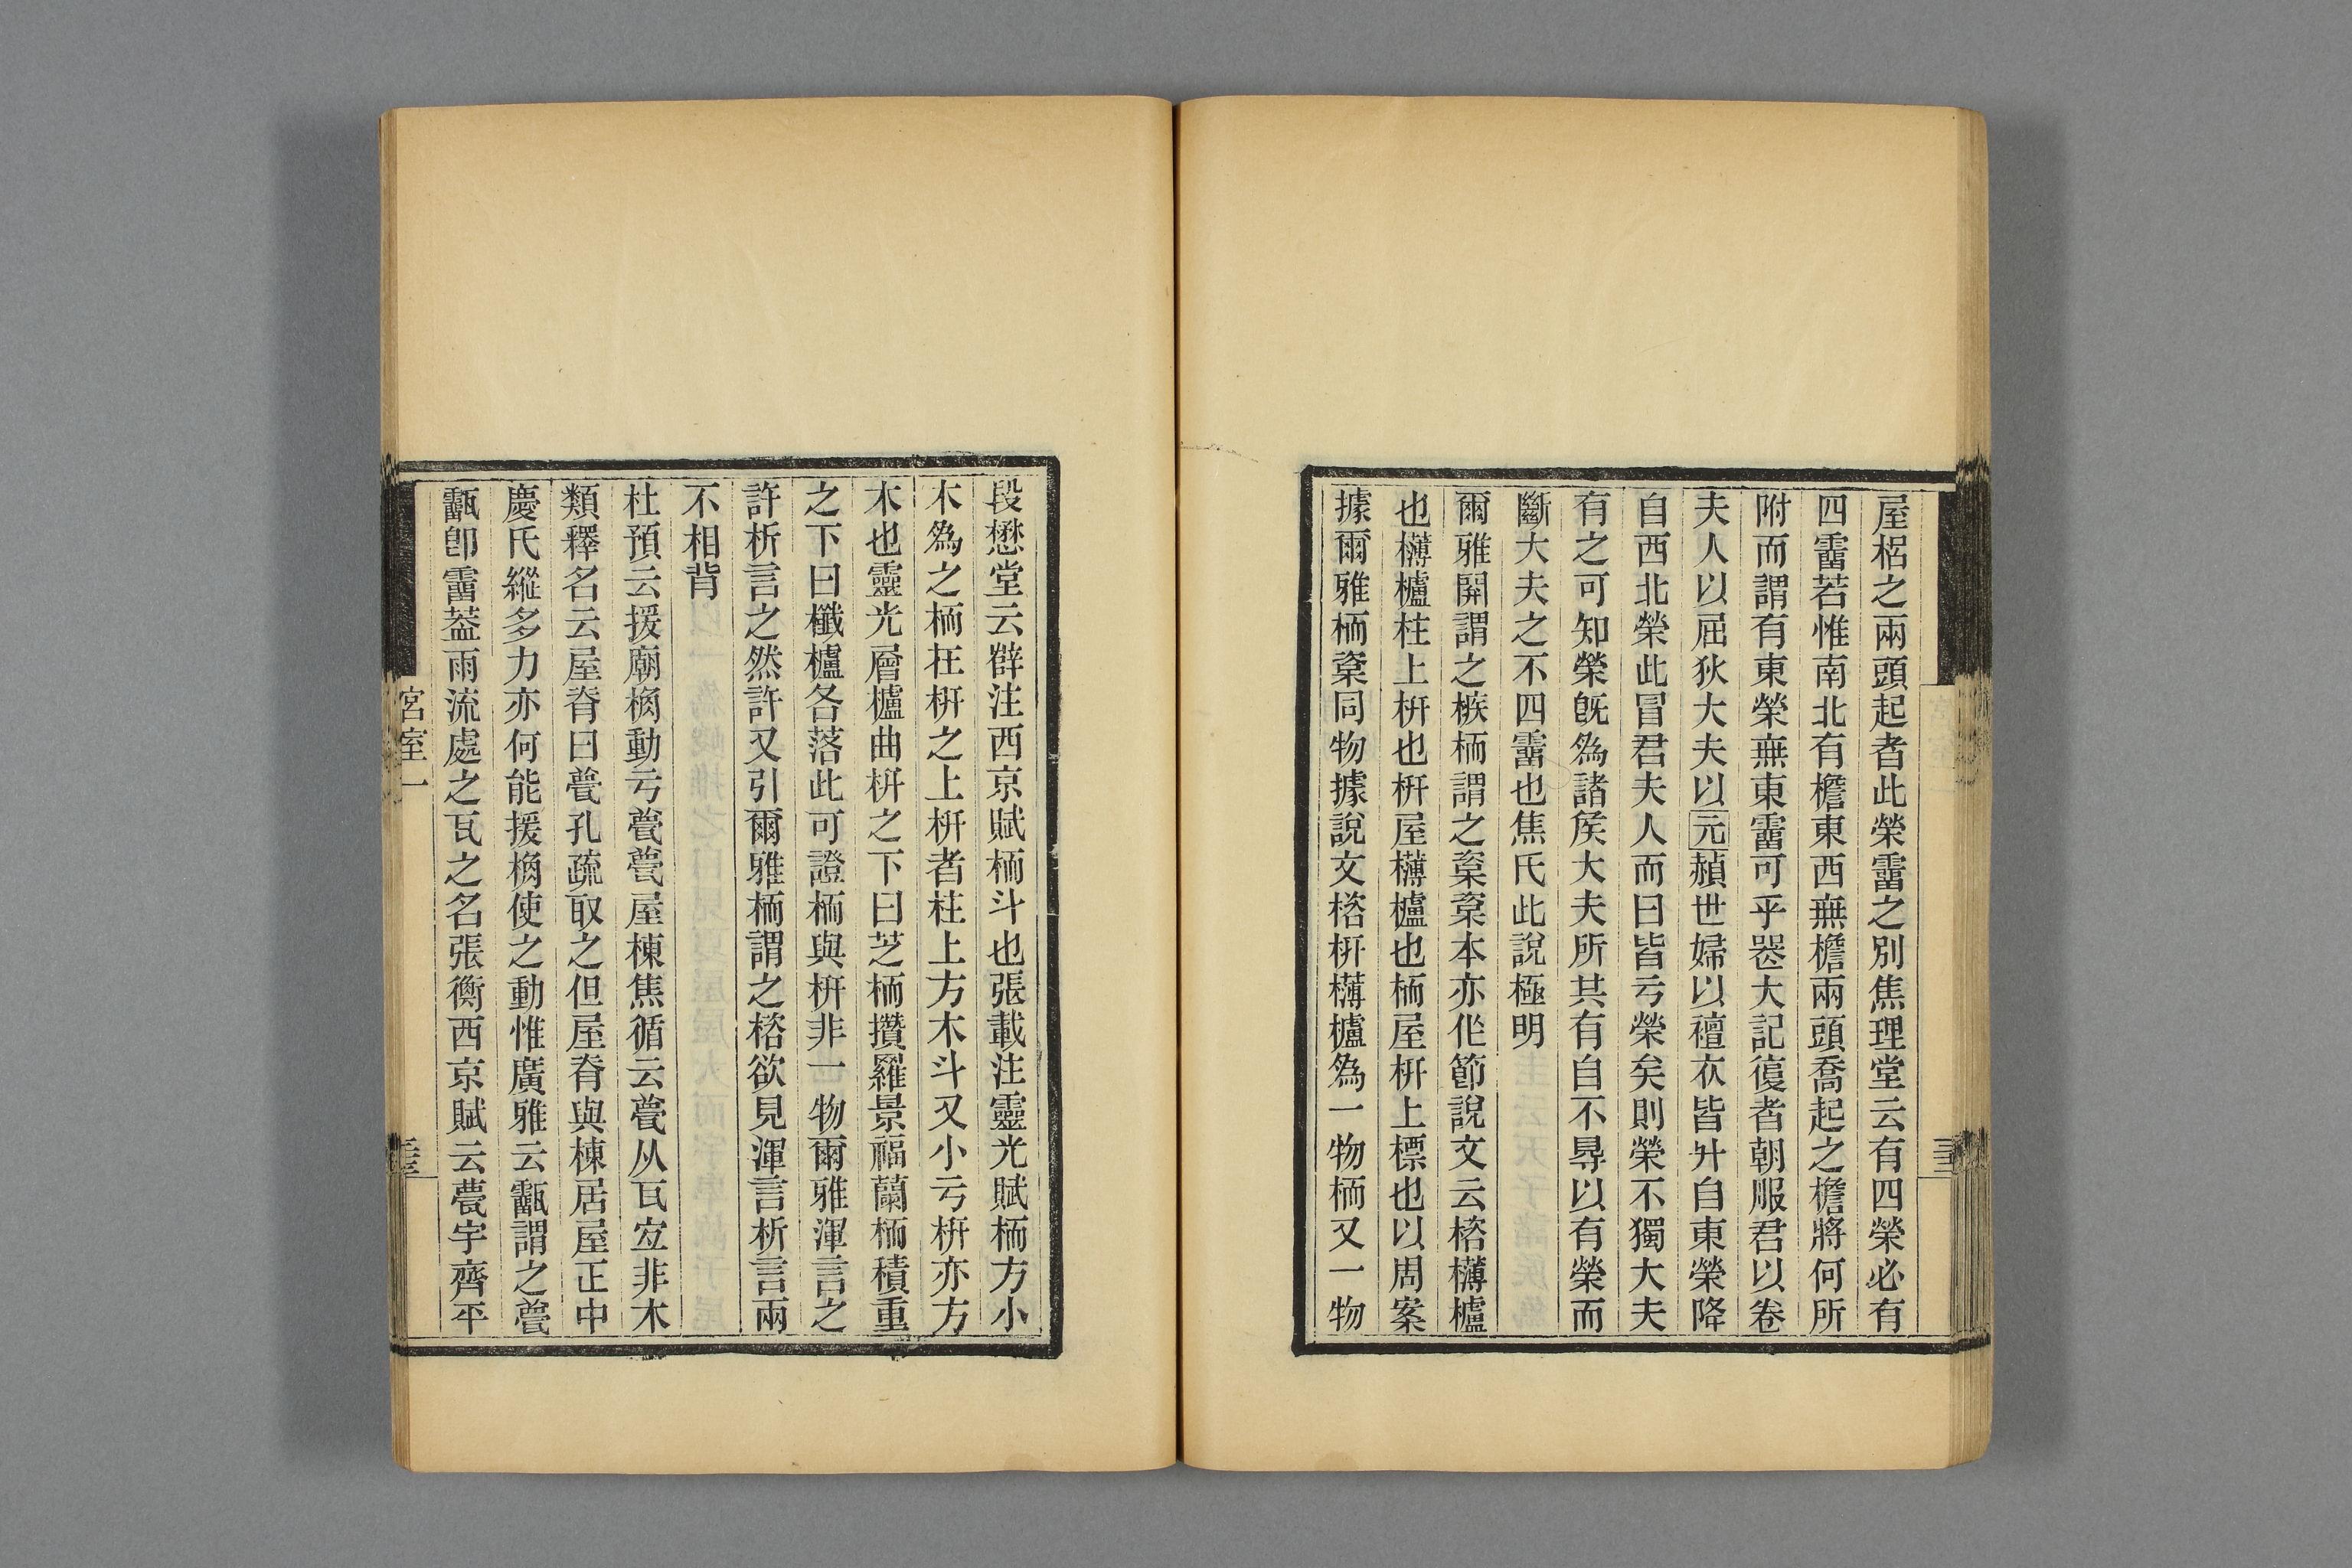 屋梠之兩頭起者此榮霤之別焦理堂云有四榮必有
四霤若惟南北有檐東西無檐兩頭喬起之檐將何所
附而謂有東榮無東霤可乎喪大記復者朝服君以卷
夫人以屈狄大夫以元赬世婦以襢衣皆升自東榮降
自西北榮此冒君夫人而曰皆亏榮矣則榮不獨大夫
有之可知榮旣爲諸矦大夫所共有自不㝵以有榮而
斷大夫之不四霤也焦氏此說極明
爾雅開謂之槉栭謂之楶楶本亦作節說文云格欂櫨
也欂櫨柱上枅也枅屋欂櫨也栭屋枅上標也以周案
據爾雅栭楶同物據說文格枅欂櫨爲一物栭又一物
段懋堂云薛注西京賦栭斗也張載注靈光賦栭方小
木爲之栭在枅之上枅者柱上方木斗又小亏枅亦方
木也靈光層櫨曲枅之下曰芝栭攢羅景福蘭栭積重
之下曰櫼櫨各落此可證栭與枅非一物爾雅渾言之
許析言之然許又引爾雅栭謂之格欲見渾言析言兩
不相背
杜預云援廟桷動亏甍甍屋棟焦循云甍从瓦宜非木
類釋名云屋脊曰甍孔疏取之但屋脊與棟居屋正中
慶氏縱多力亦何能援桷使之動惟廣雅云甂謂之甍
甂卽霤葢雨流處之瓦之名張衡西京賦云甍宇齊平
宮室一